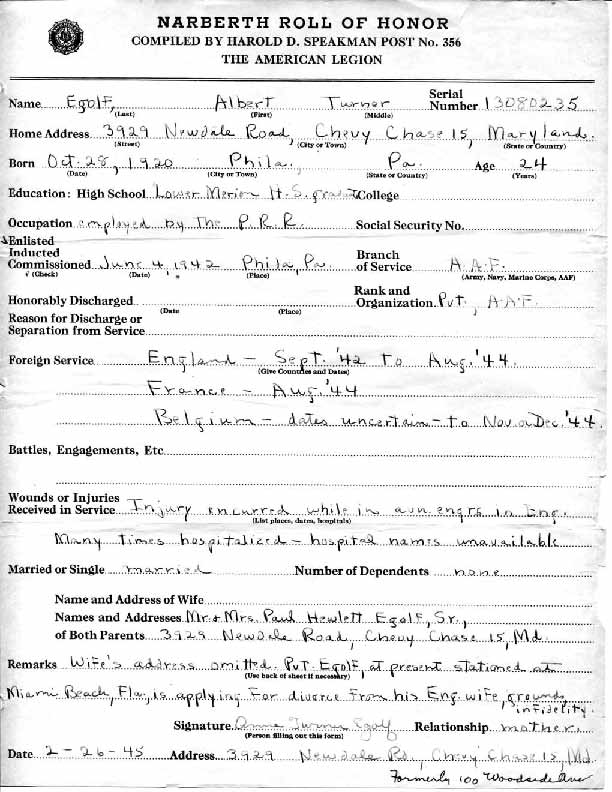 NARBERTH ROLL OF HONOR
COMPILED BY HAROLD D. SPEAKMAN POST No. 356
THE AMERICAN LEGION
Name Egolf, Albert Turner Serial Number 13080235
(Last) (First) (Middle)
Home Address 3929 Newdale Road, Chevy Chase 15, Maryland.
(Street) (City or Town) (State or Country)
Born Oct. 28, 1920 Phila., Pa. Age 24
(Date) (City or Town) (State or Country) (Years)
Education: High School Lower Merion H.S. College
Occupation employed by the P.R.R. Social Security No.
Enlisted
Inducted
Commissioned June 4, 1942 Phila, Pa. Branch of Service A.A.F.
√ (Check) (Date) (Place) (Army, Navy, Marine Corps, AAF)
Honorably Discharged Rank and Organization Pvt., A.A.F.
(Date (Place)
Reason for Discharge or
Separation from Service
Foreign Service England - Sept. '42 to Aug. '44.
(Give Countries and Dates)
France - Aug. '44
Belgium - dates uncertain - to Nov. or Dec. '44.
Battles, Engagements, Etc
Wounds or Injuries
Received in Service Injury encurred while in avn engrs in Eng.
(List places, dates, hospitals)
Many times hospitalized - hospital names unavailable
Married or Single married Number of Dependents none
Name and Address of Wife
Names and Addresses Mr. & Mrs. Paul Hewlett Egolf, Sr.,
of Both Parents 3929 Newdale Road, Chevy Chase 15, Md.
Remarks Wife's address omitted. Pvt. Egolf, at present stationed at
(Use back of sheet if necessary)
Miami Beach, Fla., is applying for divorce from his Eng. wife, grounds,
infidelity.
Signature Anne Turner Egolf Relationship mother.
(Person filling out this form)
Date 2-26-45 Address 3929 Newdale Rd., Chevy Chase 15, Md.
Formerly 100 Woodside Ave.